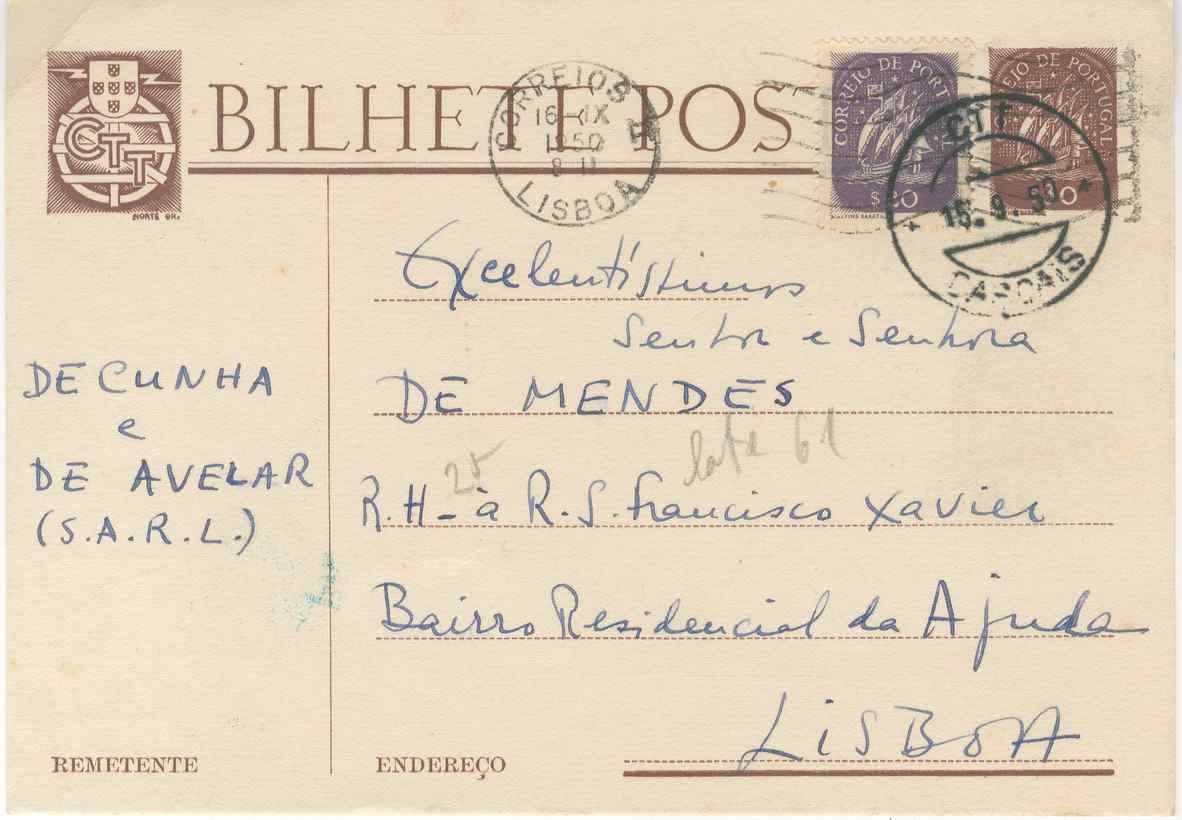 CTT
NORTE GR.
BILHETE POS
CORREIOS
16 IX
1950
8 11
LISBOA
CORREIO DE PORT
$ 30
EIO DE PORTUGAL
CTT
15.9.50
CASCAIS
Excelentíssimos
Senhor e Senhora
DE CUNHA
e
DE AVELAR
(S.A.R.L.)
DE MENDES
61
25
R.H-à R.S. Francisco Xavier
Bairro Residencial da Ajuda
LiSBOA
REMETENTE
ENDEREÇO